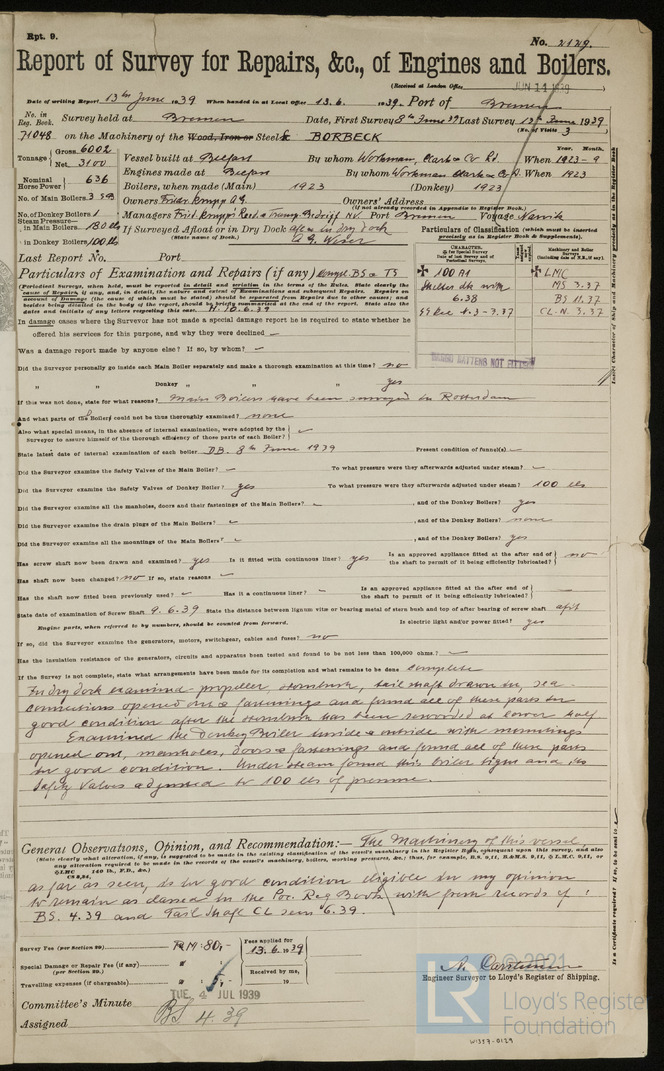 Rpt. 9.
No. 2129.
Report of Survey for Repairs, &c., of Engines and Boilers.
(Received at London Office JUN 14 1939)
Date of writing Report 13th June 1939 When handed in at Local Office 13.6. 1939. Port of Bremen
No. in Reg. Book. Survey held at Bremen Date, First Survey 8th June 39 Last Survey 13th June 1939
(No. of Visits 3)
71048 on the Machinery of the Wood, Iron or Steel S BORBECK
Tonnage Gross 6002 Net 3100
Vessel built at Belfast By whom Workman, Clark & Co Ld. When 1923-9
Year. Month.
Engines made at Belfast By whom Workman Clark & Co Ld When 1923
Nominal Horse Power 636
Boilers, when made (Main) 1923 (Donkey) 1923
No. of Main Boilers 3
Owners Fried. Krupp A.G. Owners' Address
(if not already recorded in Appendix to Register Book.)
No. of Donkey Boilers 1
Managers Fried. Krupp's Port Bremen Voyage Narvik
Steam Pressure in Main Boilers 180 lb
in Donkey Boilers 100 lb
If Surveyed Afloat or in Dry Dock afloat & in dry dock
(State name of Dock.) A.G. Weser
Particulars of Classification (which must be inserted precisely as in Register Book & Supplements).
Last Report No. Port
CHARACTER.
Machinery and Boiler Surveys
+ 100 A1
Shelter dk with
6.38
+ LMC
MS 3.37
BS 11.37
CL-N. 3.37
Particulars of Examination and Repairs (if any) Compl. BS & TS
(Periodical Surveys, when held, must be reported in detail and seriatim in the terms of the Rules. State clearly the
causes of Repairs, if any, and, in detail, the nature and extent of Examinations and subsequent Repairs. Repairs on
account of Damage (the cause of which must be stated) should be separated from Repairs due to other causes; and
besides being detailed in the body of the report, should be briefly summarised at the end of the report. State also the
dates and initials of any letters respecting this case. H. 10.6.39
In damage cases where the Surveyor has not made a special damage report he is required to state whether he
offered his services for this purpose, and why they were declined –
Was a damage report made by anyone else? If so, by whom? –
CARGO BATTENS NOT FITTED
Did the Surveyor personally go inside each Main Boiler separately and make a thorough examination at this time? no
" " Donkey " " " " yes
If this was not done, state for what reasons? Main Boilers have been surveyed in Rotterdam
And what parts of the Boilers could not be thoroughly examined? none
Also what special means, in the absence of internal examination, were adopted by the
Surveyor to assure himself of the thorough efficiency of those parts of each Boiler?
State latest date of internal examination of each boiler DB. 8th June 1939 Present condition of funnel(s) –
Did the Surveyor examine the Safety Valves of the Main Boiler? – To what pressure were they afterwards adjusted under steam? –
Did the Surveyor examine the Safety Valves of Donkey Boiler? yes To what pressure were they afterwards adjusted under steam? 100 lbs
Did the Surveyor examine all the manholes, doors and their fastenings of the Main Boilers? – , and of the Donkey Boilers? yes
Did the Surveyor examine the drain plugs of the Main Boilers? – , and of the Donkey Boilers? none
Did the Surveyor examine all the mountings of the Main Boilers? – , and of the Donkey Boilers? yes
Has screw shaft now been drawn and examined? yes Is it fitted with continuous liner? yes Is an approved appliance fitted at the after end of the shaft to permit of it being efficiently lubricated? no
Has shaft now been changed? no If so, state reasons –
Has the shaft now fitted been previously used? – Has it a continuous liner? – Is an approved appliance fitted at the after end of the shaft to permit of it being efficiently lubricated? –
State date of examination of Screw Shaft 9.6.39 State the distance between lignum vitæ or bearing metal of stern bush and top of after bearing of screw shaft
Engine parts, when referred to by numbers, should be counted from forward. Is electric light and/or power fitted? yes
If so, did the Surveyor examine the generators, motors, switchgear, cables and fuses? no
Has the insulation resistance of the generators, circuits and apparatus been tested and found to be not less than 100,000 ohms? –
If the Survey is not complete, state what arrangements have been made for its completion and what remains to be done complete
In dry dock examined propeller, sternbush, tail shaft drawn in, sea
connections opened out & fastenings and found all of these parts in
good condition after the sternbush has been rewooded at lower half
Examined the Donkey Boiler inside & outside with mountings
opened out, manholes, doors & fastenings and found all of these parts
in good condition. Under steam found this boiler tight and its
safety valves adjusted to 100 lbs of pressure.
General Observations, Opinion, and Recommendation:— The Machinery of this vessel
(State clearly what alteration, if any, is suggested to be made in the existing classification of the vessel's machinery in the Register Book, consequent upon this survey, and also
any alteration required to be made in the records of the vessel's machinery, boilers, working pressures, &c.; thus, for example, B.S. 9,11, B.&M.S. 9,11, or L.M.C. 9,11, or
as far as seen, is in good condition eligible in my opinion
to remain as classed in the Soc. Reg Book with fresh records of:
BS. 4.39 and Tail Shaft CL seen 6.39.
Survey Fee (per Section 29) RM: 80,-
Fees applied for 13.6.1939
Special Damage or Repair Fee (if any)
(per Section 29.)
Received by me,
Travelling expenses (if chargeable) 5,-
19
Engineer Surveyor to Lloyd's Register of Shipping.
Committee's Minute TUE 4 JUL 1939
Assigned BS 4.39
© 2021
LR Lloyd's Register Foundation
W1357-0129